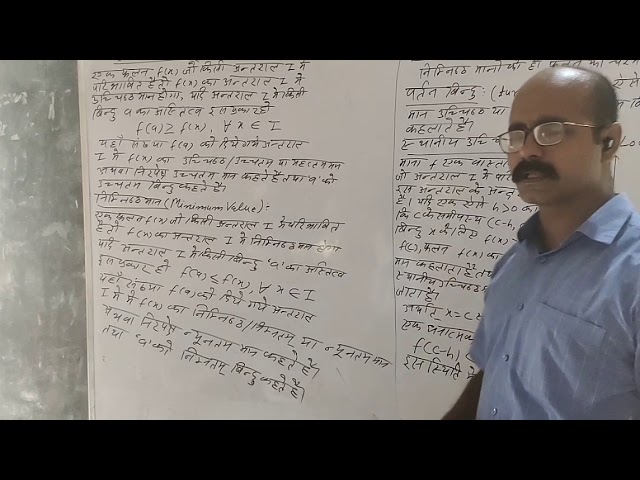 एक फलन f(x) जो किसी अन्तराल I में
परिभाषित है तो f(x) का अन्तराल I में
उच्चिष्ठ मान होगा, यदि अन्तराल I में किसी
बिन्दु a का अस्तित्व इस प्रकार हो
f(a) ≥ f(x), ∀ x ∈ I
यहाँ संख्या f(a) को दिये गये अन्तराल
I में f(x) का उच्चिष्ठ/उच्चतम या महत्तम मान
अथवा निरपेक्ष उच्चतम मान कहते हैं तथा 'a' को
उच्चतम बिन्दु कहते हैं।
निम्निष्ठ मान (Minimum Value):
एक फलन f(x) जो किसी अन्तराल I में परिभाषित
है तो f(x) का अन्तराल I में निम्निष्ठ मान होगा
यदि अन्तराल I में किसी बिन्दु 'a' का अस्तित्व
इस प्रकार हो f(a) ≤ f(x), ∀ x ∈ I
यहाँ संख्या f(a) को दिये गये अन्तराल
I में f(x) का निम्निष्ठ/निम्नतम् या न्यूनतम मान
अथवा निरपेक्ष न्यूनतम मान कहते हैं।
तथा 'a' को निम्नतम् बिन्दु कहते हैं।
निम्निष्ठ मानों को ही फलन
वर्तन बिन्दु:
मान उच्चिष्ठ या
कहलाते हैं।
स्थानीय उच्चि
माना f एक वास्त
जो अन्तराल I में परि
इस अन्तराल के अन्त
है। यदि एक ऐसे h>0 का
कि c के समीपस्थ (c-h,
बिन्दु x के लिए f(x)
f(c), फलन f(x) का
मान कहलाता है तथा
स्थानीय उच्चिष्ठ
जाता है।
अर्थात् x = c
एक धनात्मक
f(c-h)
इस स्थिति में